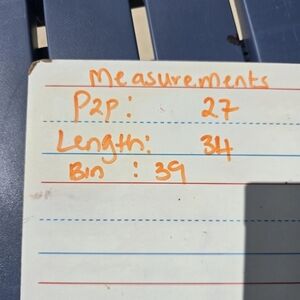 Measurements
P2p: 27
Length: 34
Bin : 39